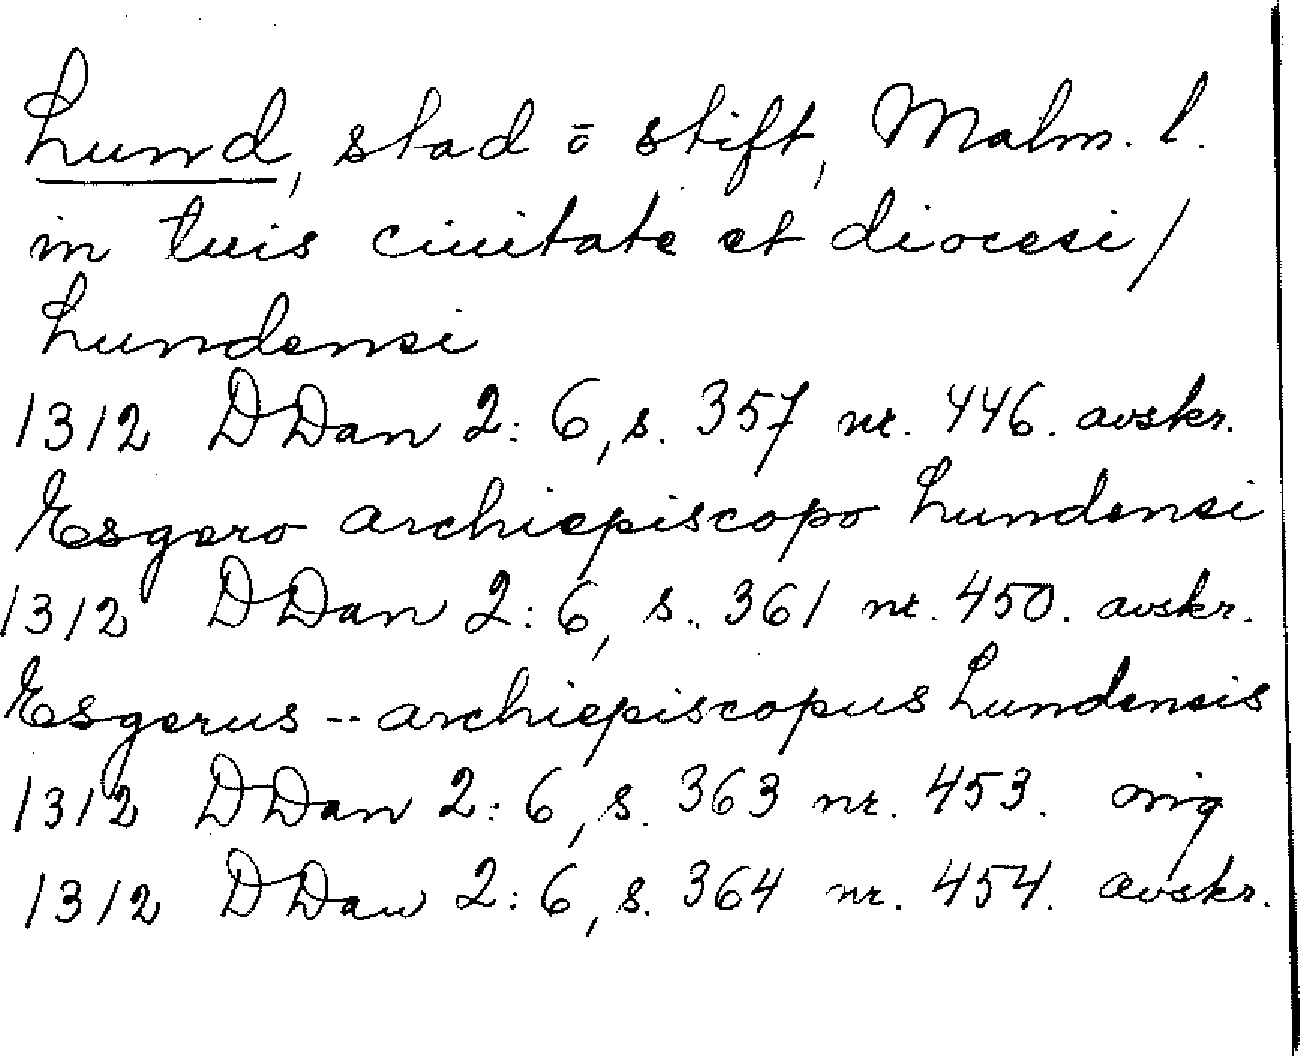 Lund, stad ō stift, Malm. l.
in tuis ciuitate et diocesi/
Lundensi
1312 DDan 2:6, s. 357 nr. 446. avskr.
Esgero archiepiscopo Lundensi
1312 DDan 2:6, s. 361 nr. 450. avskr.
Esgerus -- archiepiscopus Lundensis
1312 DDan 2:6, s. 363 nr. 453. orig
1312 DDan 2:6, s. 364 nr. 454. avskr.